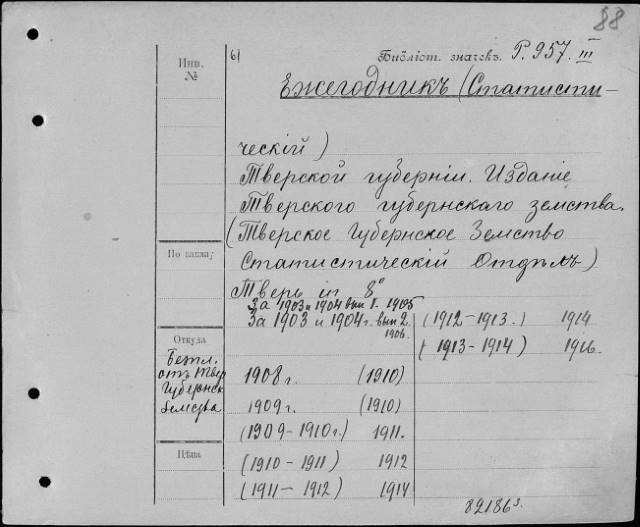 88
Инв.
№
61
Библіот. значекъ. Р. 957. III
Ежегодникъ (Статисти-
ческій)
Тверской губерніи. Изданіе
Тверского губернскаго земства.
(Тверское Губернское Земство
Статистическій Отдѣлъ)
По каталу
Тверь in 8°
За 1903 и 1904 вып 1. 1905
За 1903 и 1904 г. вып 2.
1906.
(1912-1913.) 1914
(1913-1914) 1916.
Откуда
Безпл.
отъ Твер
Губернск
Земства
1908 г. (1910)
1909 г. (1910)
(1909-1910 г.) 1911.
Цѣна
(1910-1911) 1912
(1911-1912) 1914
82186 з.